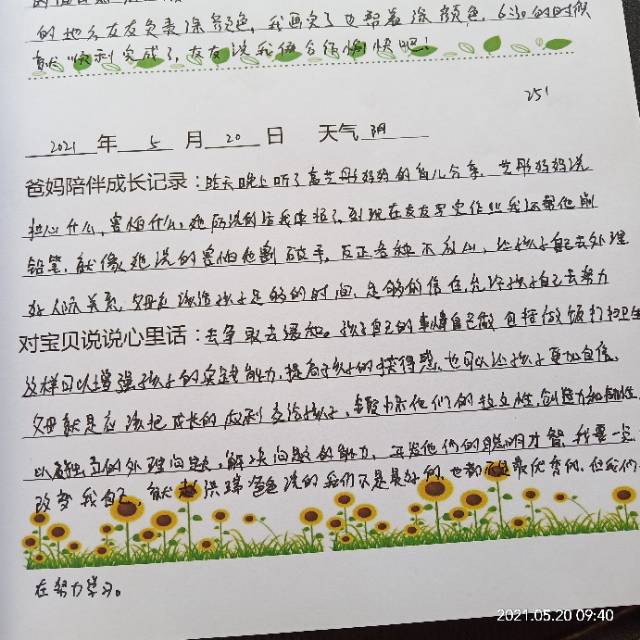 的地方友友负责涂颜色,我画完了也帮着涂颜色,6:30的时候
就顺利完成了,友友说我俩合作愉快吧!
251
2021年5月20日 天气 阴
爸妈陪伴成长记录:昨天晚上听了高艺彤妈妈的育儿分享,艺彤妈妈说
担心什么,害怕什么,她所说的话我 到现在友友写完作业我还帮他削
铅笔,就像她说的害怕他割破手,反正各种不放心,让孩子自己去处理
好人际关系,父母应该给孩子足够的时间,足够的信任,允许孩子自己去努力
对宝贝说说心里话:去争取去感知。孩子自己的事情自己做包括做饭打扫卫生
这样可以增强孩子的实践能力,提高孩子的获得感,也可以让孩子更加自信。
父母就是应该把成长的权利交给孩子,锻炼他们的独立性,创造力和
以及独立的处理问题,解决问题的能力,开发他们的聪明才智,我要一定
改变我自己,就 洪瑞爸爸说的我们不是最好的,也都不是最优秀的,但我们
在努力学习。
2021.05.20 09:40